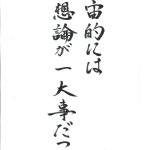 宙的には
想論が一大事だっ